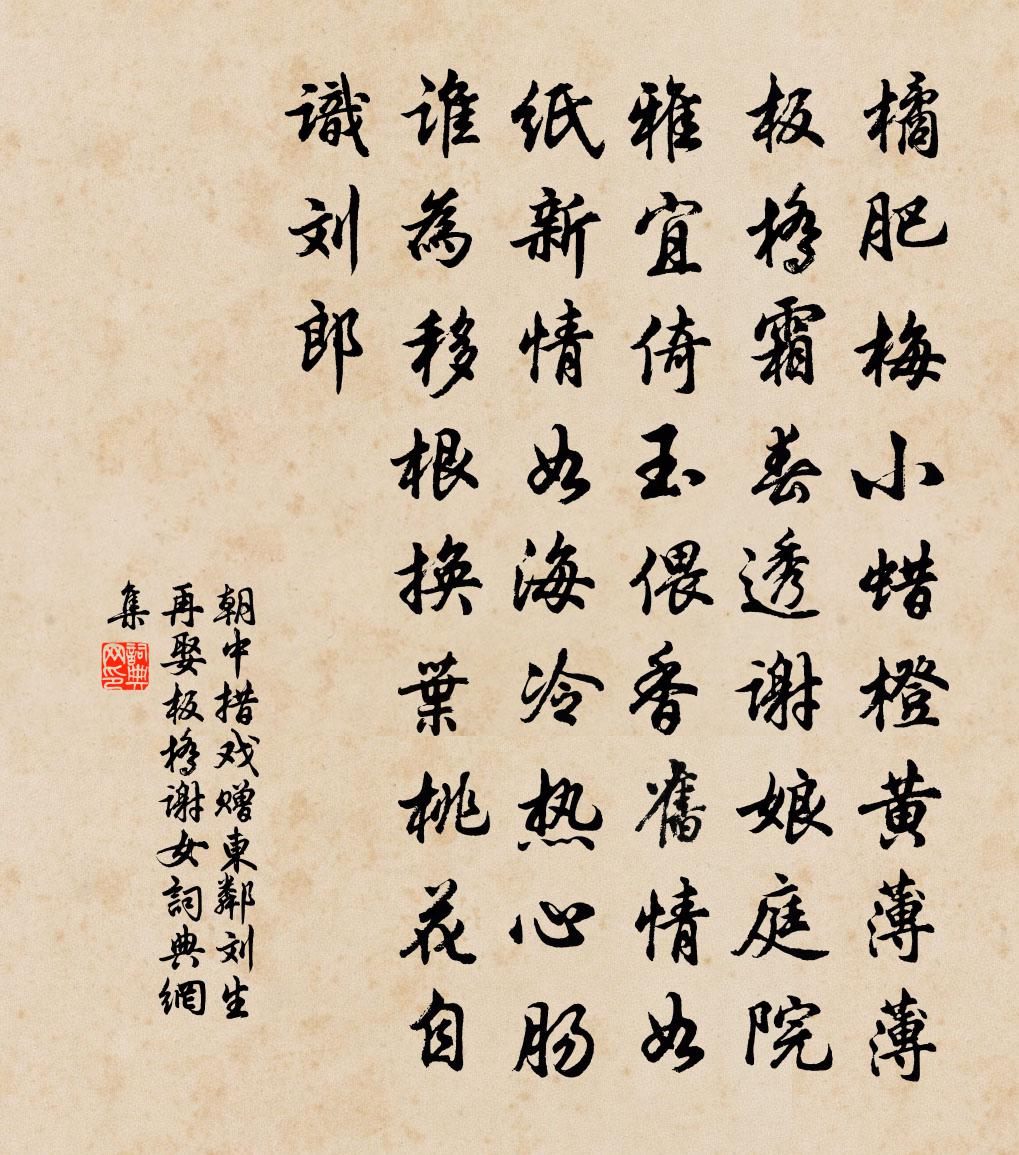 橘肥梅小蜡橙黄薄薄
板橋霜春透谢娘庭院
雅宜倚玉偎香舊情如
纸新情如海冷热心肠
谁為移根换葉桃花自
識刘郎
朝中措戏赠東鄰刘生
再娶板橋谢女詞典網
集
詞典网印